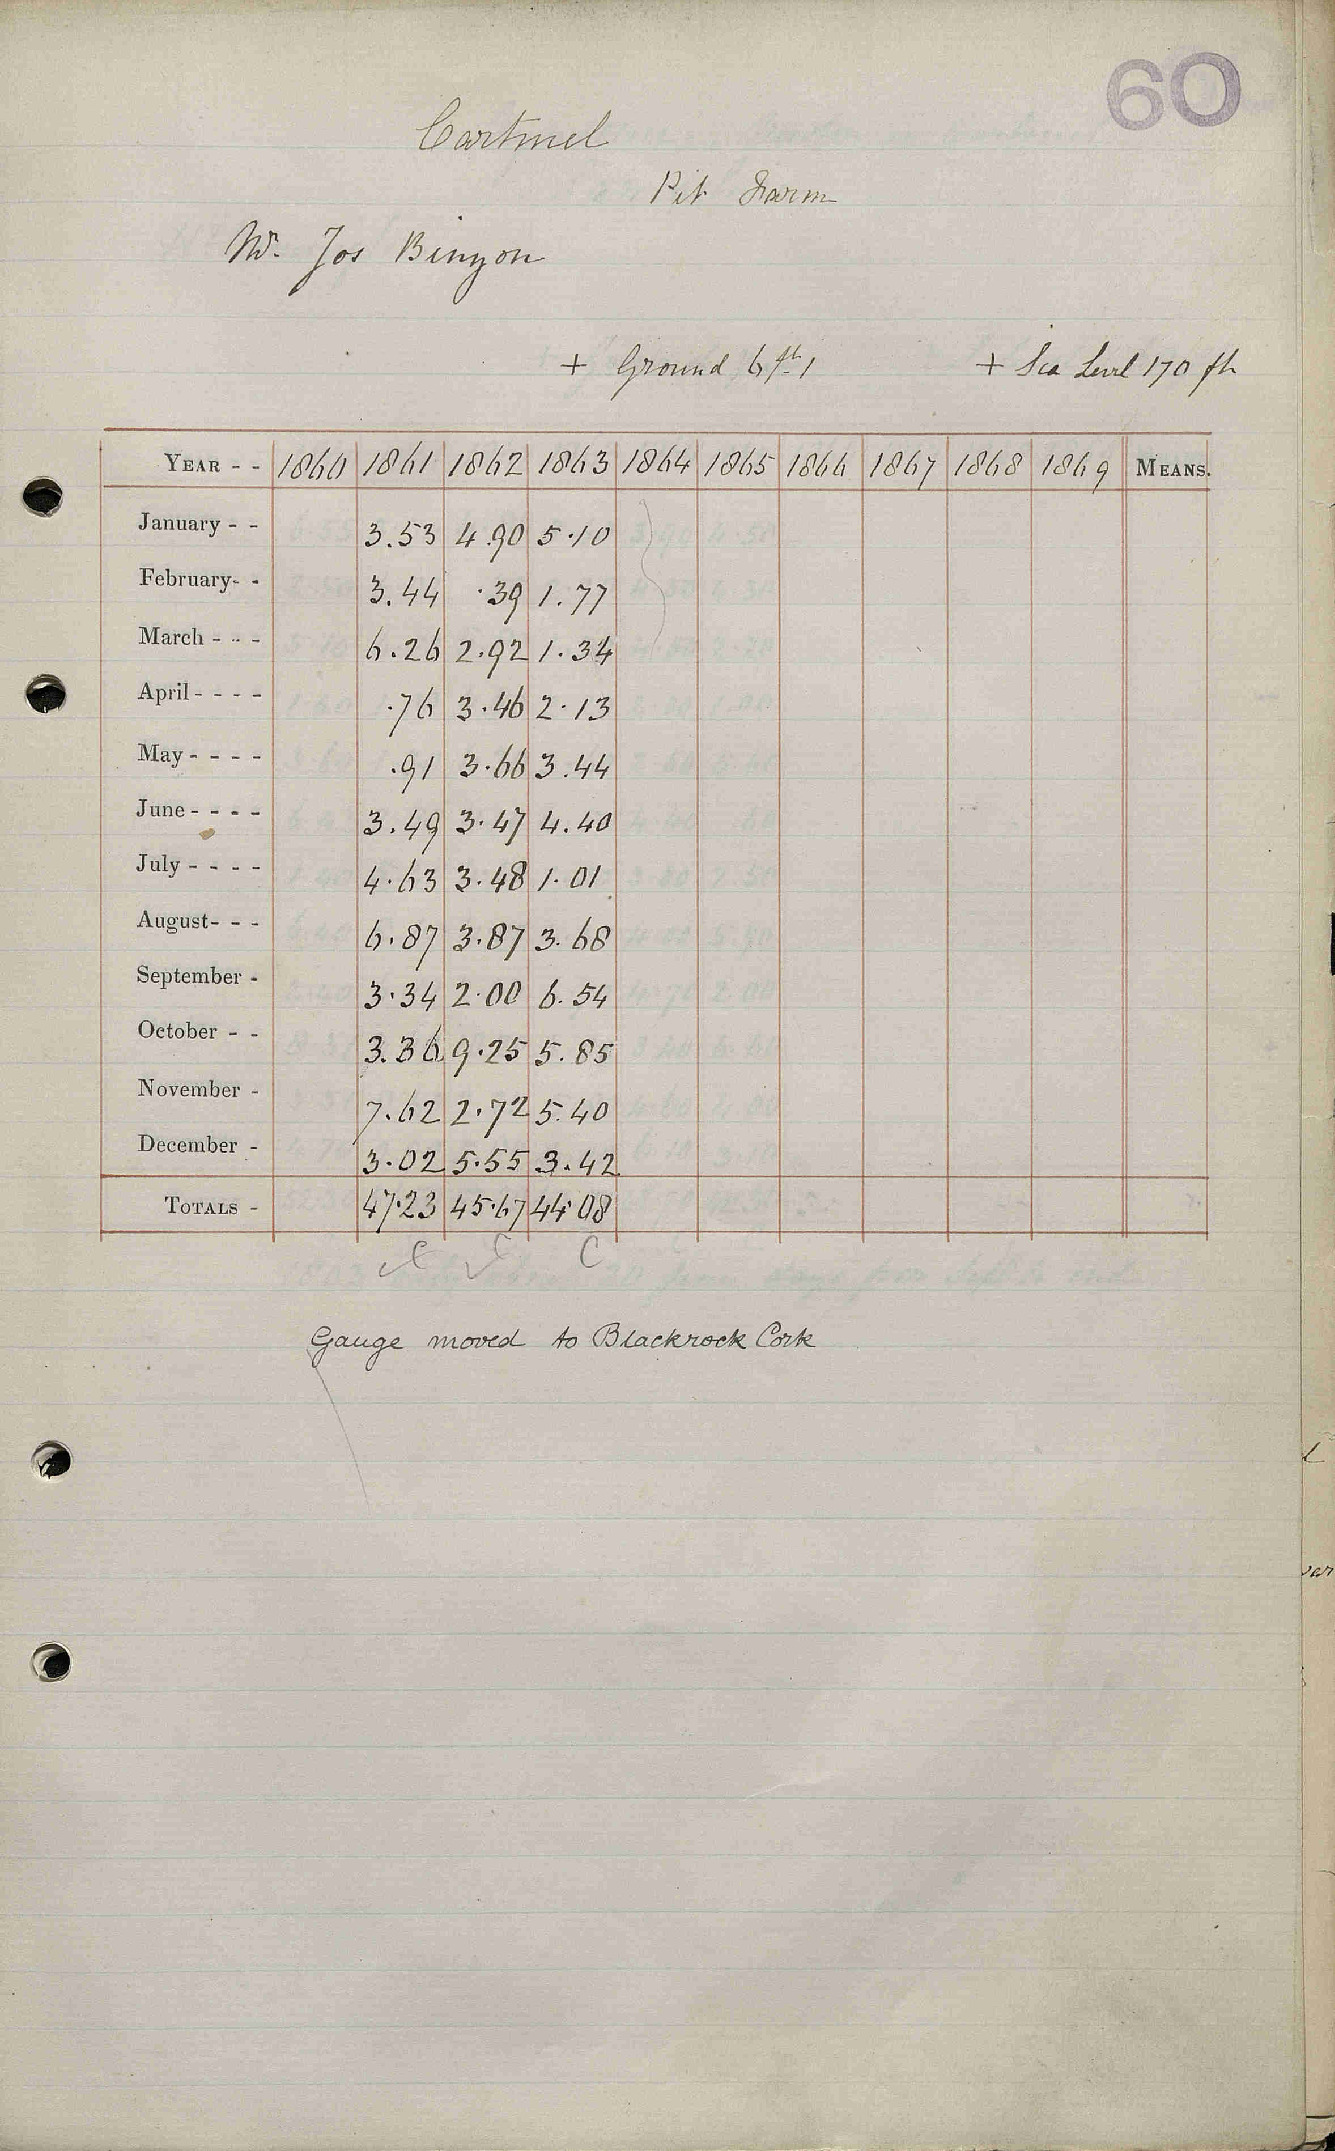 60
Cartmel
Pit Farm
Mr. Jos Binyon
+ Ground 6 ft. 1 + Sea Level 170 ft
YEAR - - 1860 1861 1862 1863 1864 1865 1866 1867 1868 1869 MEANS.
January - - 3.53 4.90 5.10
February- - 3.44 .39 1.77
March - - - 6.26 2.92 1.34
April - - - - .76 3.46 2.13
May - - - - .91 3.66 3.44
June - - - - 3.49 3.47 4.40
July - - - - 4.63 3.48 1.01
August- - - 6.87 3.87 3.68
September - 3.34 2.00 6.54
October - - 3.36 9.25 5.85
November - 7.62 2.72 5.40
December - 3.02 5.55 3.42
TOTALS - 47.23 45.67 44.08
C C C
Gauge moved to Blackrock Cork